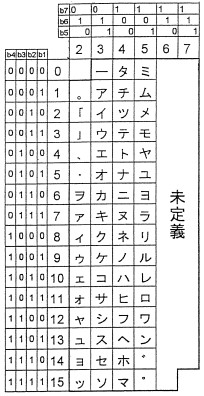 b7 0 0 1 1 1 1
b6 1 1 0 0 1 1
b5 0 1 0 1 0 1
b4 b3 b2 b1 2 3 4 5 6 7
0 0 0 0 0 ー タ ミ
0 0 0 1 1 。 ア チ ム
0 0 1 0 2 「 イ ツ メ
0 0 1 1 3 」 ウ テ モ
0 1 0 0 4 、 エ ト ヤ
0 1 0 1 5 ・ オ ナ ユ
0 1 1 0 6 ヲ カ ニ ヨ
0 1 1 1 7 ァ キ ヌ ラ
1 0 0 0 8 ィ ク ネ リ
1 0 0 1 9 ゥ ケ ノ ル
1 0 1 0 10 ェ コ ハ レ
1 0 1 1 11 ォ サ ヒ ロ
1 1 0 0 12 ャ シ フ ワ
1 1 0 1 13 ュ ス ヘ ン
1 1 1 0 14 ョ セ ホ ゛
1 1 1 1 15 ッ ソ マ ゜
未定義